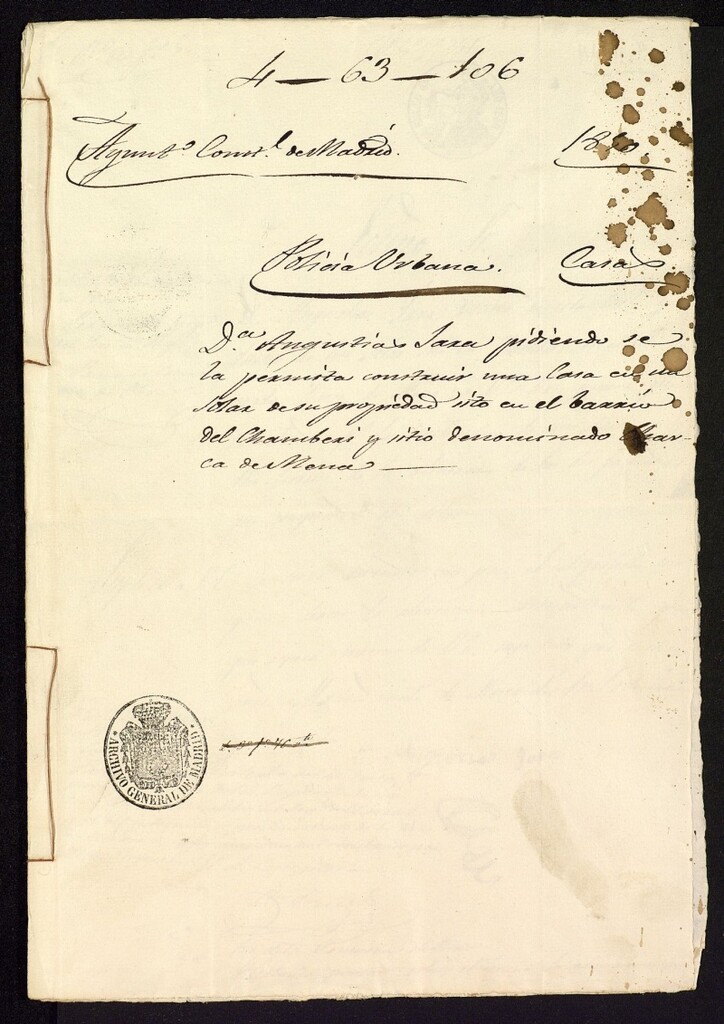 4 — 63 — 106
Ayunt.º Const.l de Madrid.
Policia Urbana. Casas
D.ª Angustias Jara pidiendo se
la permita construir una Casa en un
Solar de su propiedad sito en el barrio
del Chamberi y sitio denominado
ca de Mena —
ARCHIVO GENERAL DE MADRID